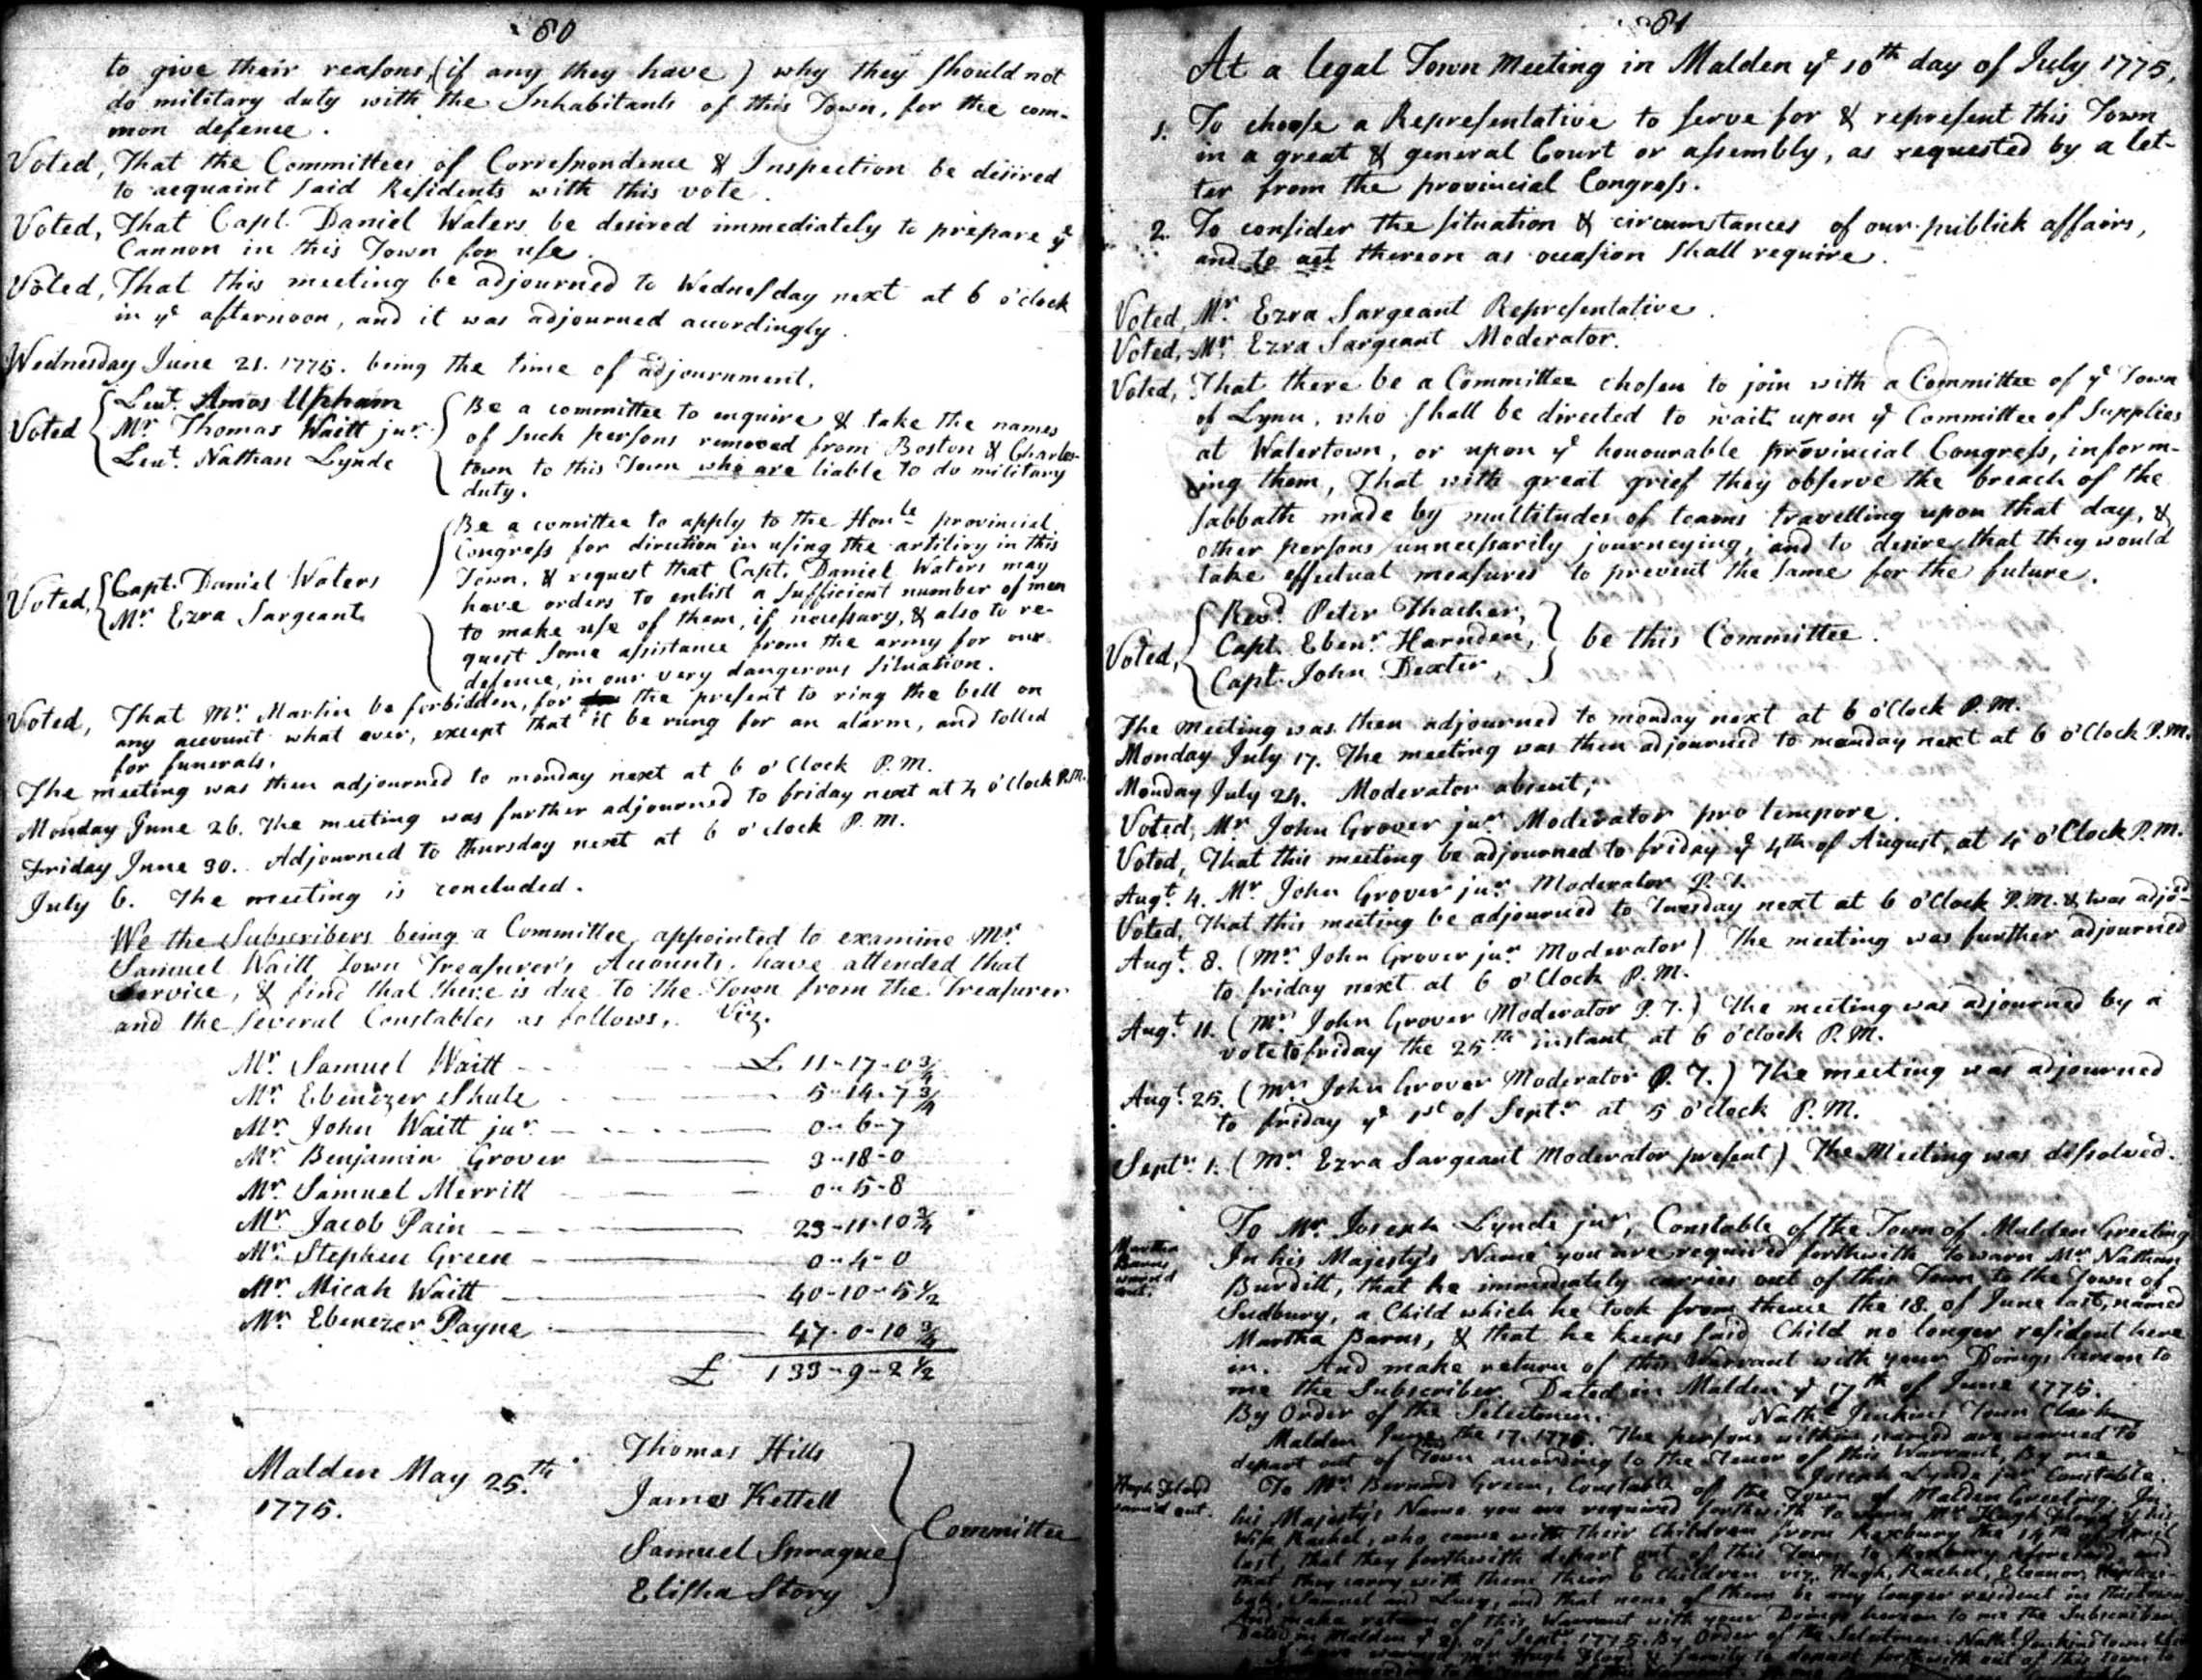 80
to give their reasons, (if any they have) why they should not
do military duty with the Inhabitants of this Town, for the com-
mon defence.
Voted, That the Committees of Correspondence & Inspection be desired
to acquaint said Residents with this vote.
Voted, That Capt. Daniel Waters be desired immediately to prepare ye
Cannon in this Town for use.
Voted, That this meeting be adjourned to Wednesday next at 6 o'clock
in ye afternoon, and it was adjourned accordingly.
Wednesday June 21. 1775. being the time of adjournment.
Voted
Leut. Amos Upham
Mr Thomas Waitt jur.
Leut. Nathan Lynde
Be a committee to enquire & take the names
of such persons removed from Boston & Charles-
town to this Town who are liable to do military
duty.
Voted,
Capt. Daniel Waters
Mr. Ezra Sargeant
Be a comittee to apply to the Honle provincial
Congress for direction in using the artiliry in this
Town, & request that Capt. Daniel Waters may
have orders to enlist a sufficient number of men
to make use of them, if necessary, & also to re-
quest some assistance from the army for our
defence, in our very dangerous situation.
Voted, That Mr. Martin be forbidden, for the present to ring the bell on
any account what ever, except that it be rung for an alarm, and tolled
for funerals.
The meeting was then adjourned to monday next at 6 o'Clock P.M.
Monday June 26. The meeting was further adjourned to friday next at 4 o'Clock P.M.
Friday June 30. Adjourned to thursday next at 6 o'clock P.M.
July 6. The meeting is concluded.
We the Subscribers being a Committee appointed to examine Mr.
Samuel Waitt Town Treasurer's Accounts, have attended that
Service, & find that there is due to the Town from the Treasurer
and the several Constables as follows, Viz.
Mr. Samuel Waitt £ 11-17-0 3/4
Mr. Ebenezer Shute 5-14-7 3/4
Mr. John Waitt jur. 0-6-7
Mr. Benjamin Grover 3-18-0
Mr. Samuel Merritt 0-5-8
Mr. Jacob Pain 23-11-10 3/4
Mr. Stephen Green 0-4-0
Mr. Micah Waitt 40-10-5 1/2
Mr. Ebenezer Payne 47-0-10 3/4
£ 133-9-2 1/2
Malden May 25th.
1775.
Thomas Hills
James Kettell
Samuel Sprague
Elisha Story
Committee
81
At a legal Town Meeting in Malden ye 10th day of July 1775,
1. To choose a Representative to serve for & represent this Town
in a great & general Court or assembly, as requested by a let-
ter from the provincial Congress.
2. To consider the situation & circumstances of our publick affairs,
and to act thereon as occasion shall require.
Voted, Mr. Ezra Sargeant Representative.
Voted, Mr. Ezra Sargeant Moderator.
Voted, That there be a Committee chosen to join with a Committee of ye Town
of Lynn, who shall be directed to wait upon ye Committee of Supplies
at Watertown, or upon ye honourable provincial Congress, inform-
ing them, That with great grief they observe the breach of the
sabbath made by multitudes of teams travelling upon that day, &
other persons unnecessarily journeying, and to desire that they would
take effectual measures to prevent the same for the future.
Voted,
Revd. Peter Thacher,
Capt. Ebenr. Harnden,
Capt. John Dexter,
be this Committee.
The meeting was then adjourned to monday next at 6 o'Clock P.M.
Monday July 17. The meeting was then adjourned to monday next at 6 o'Clock P.M.
Monday July 24. Moderator absent;
Voted, Mr John Grover jur. Moderator pro tempore.
Voted, That this meeting be adjourned to friday ye 4th of August, at 4 o'Clock P.M.
Augt. 4. Mr. John Grover jur. Moderator P.T.
Voted, That this meeting be adjourned to Tuesday next at 6 o'Clock P.M. & was adjod-
Augt. 8. (Mr. John Grover jur. Moderator) The meeting was further adjourned
to friday next at 6 o'Clock P.M.
Augt. 11. (Mr. John Grover Moderator P.T.) The meeting was adjourned by a
vote to friday the 25th instant at 6 o'clock P.M.
Augt. 25. (Mr. John Grover Moderator P.T.) The meeting was adjourned
to friday ye 1st of Septr. at 5 o'clock P.M.
Septr. 1. (Mr. Ezra Sargeant Moderator present) The Meeting was dissolved.
Martha
Barns
warned
out.
To Mr. Joseph Lynde jur, Constable of the Town of Malden Greeting
In his Majesty's Name you are required forthwith to warn Mr. Nathan
Burditt, that he immediately carries out of this Town to the Town of
Sudbury, a Child which he took from thence the 18. of June last, named
Martha Barns, & that he keeps said Child no longer resident here
in. And make return of this Warrant with your Doings hereon to
me the Subscriber. Dated in Malden ye 17th of June 1775.
By Order of the Selectmen. Nathl. Jenkins Town Clerk
Malden June the 17. 1775. The persons within named are warned to
depart out of Town according to the Tenor of this Warrant, By me
Joseph Lynde jur Constable.
Hugh Floyd
warn'd out.
To Mr. Barnard Green, Constable of the Town of Malden Greeting. In
his Majesty's Name you are required forthwith to warn Mr. Hugh Floyd & his
Wife Rachel, who came with their Children from Roxbury the 14th of April
last, that they forthwith depart out of this Town to Roxbury aforesaid, and
that they carry with them their 6 Children viz. Hugh, Rachel, Eleanor,
Samuel and Lucy, and that none of them be any longer resident in this town
And make return of this Warrant with your Doings hereon to me the Subscriber
Dated in Malden ye 21 of Septr. 1775. By Order of the Selectmen. Nathl. Jenkins Town
warned Mr. Hugh Floyd & family to depart forthwith out of this town to